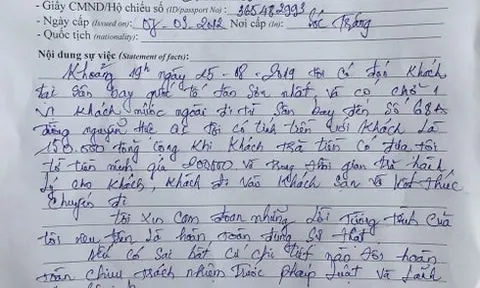 - Giấy CMND/Hộ chiếu số (ID/passport No): 365482993
- Ngày cấp (Issued on): 07.03.2012 Nơi cấp (In): Sóc Trăng
- Quốc tịch (nationality):
Nội dung sự việc (Statement of facts):
Khoảng 19h ngày 25-08-2019 tôi có đón khách
tại sân bay quốc tế tân sơn nhất và có chở 1
vị khách nước ngoài đi từ sân bay đến số 68A
đường nguyễn tôi có tính tiền với khách là
150.000 tổng cộng khi khách trả tiền có đưa tôi
tờ tiền mệnh giá 200000 và trong thời gian trả hành
lý cho khách, khách đi vào khách sạn và kết thúc
chuyến đi
Tôi xin cam đoan những lời tường trình của
tôi nêu trên là hoàn toàn đúng sự thật.
Nếu có sai bất cứ chi tiết nào tôi hoàn
toàn chịu trách nhiệm trước pháp luật và lãnh